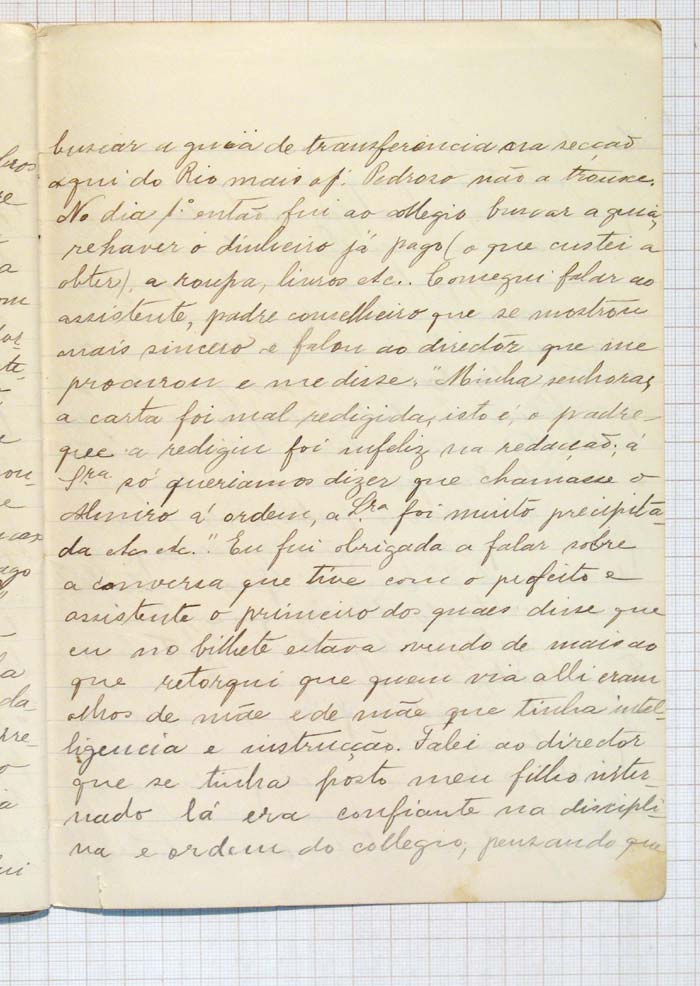 buscar a guia de transferencia na secção
aqui do Rio mais o f. Pedroso não a trouxe.
No dia 1º então fui ao collegio buscar a guia,
rehaver o dinheiro já pago (o que custei a
obter), a roupa, livros etc.. Consegui falar ao
assistente, padre conselheiro que se mostrou
mais sincero e falou ao director que me
procurou e me disse: "Minha senhora,
a carta foi mal redigida, isto é, o padre
que a redigiu foi infeliz na redacção, á
Sra só queriamos dizer que chamasse o
Almiro á ordem, a Sra foi muito precipita-
da etc etc." Eu fui obrigada a falar sobre
a conversa que tive com o prefeito e
assistente o primeiro dos quaes disse que
eu no bilhete estava vendo de mais ao
que retorqui que quem via alli eram
olhos de mãe e de mãe que tinha intel-
ligencia e instrucção. Falei ao director
que se tinha posto meu filho inter-
nado lá era confiante na discipli-
na e ordem do collegio, pensando que